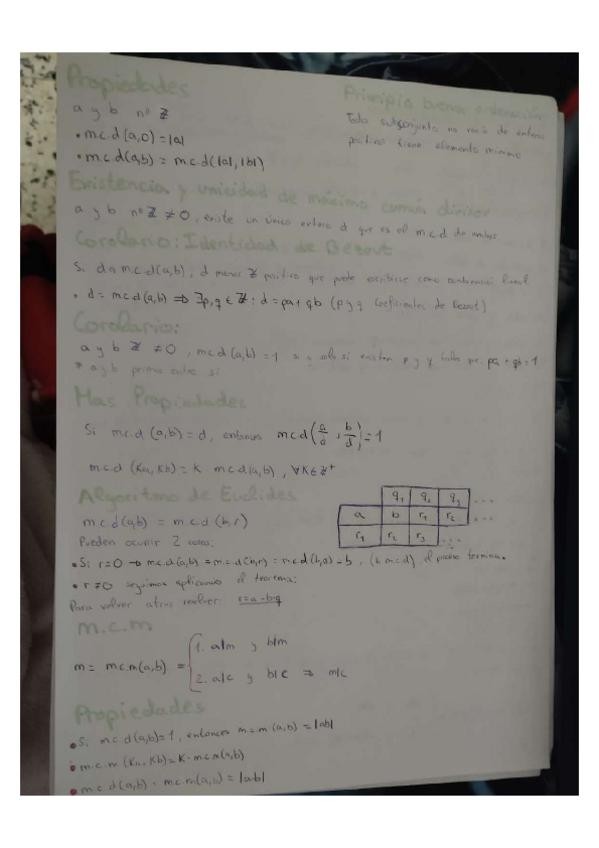 Propiedades
a y b nº ℤ
• m.c.d (a,0) = |a|
• m.c.d (a,b) = m.c.d (|a|, |b|)
Principio buena ordenación
Todo subconjunto no vacío de enteros
positivos tiene elemento mínimo
Existencia y unicidad de máximo común divisor
a y b nº ℤ ≠ 0, existe un único entero d que es el m.c.d de ambos
Corolario: Identidad de Bézout
Si d = m.c.d (a,b), d menor ℤ positivo que puede escribirse como combinación lineal
• d = m.c.d (a,b) ⇒ ∃p,q ∈ ℤ : d = pa + qb (p y q coeficientes de Bezout)
Corolario:
a y b ℤ ≠ 0, m.c.d (a,b) = 1 si y solo si existen p y q tales que pa + qb = 1
* a y b primos entre sí
Mas Propiedades
Si m.c.d (a,b) = d, entonces mcd (a/d , b/d) = 1
m.c.d (Ka, Kb) = K · m.c.d (a,b), ∀K ∈ ℤ⁺
Algoritmo de Euclides
m.c.d (a,b) = m.c.d (b,r)
Pueden ocurrir 2 cosas:
q₁ q₂ q₃ ...
a b r₁ r₂ ...
r₁ r₂ r₃ ...
• Si r=0 → m.c.d (a,b) = m.c.d (b,r) = m.c.d (b,0) = b, (b m.c.d) el proceso termina.
• r ≠ 0 seguimos aplicando el teorema:
Para volver atras resolver: r = a - b·q
m.c.m
m = m.c.m (a,b) = { 1. a/m y b/m
2. a/c y b/c ⇒ m/c
Propiedades
• Si m.c.d (a,b)=1, entonces m = m (a,b) = |ab|
• m.c.m (Ka, Kb) = K · m.c.m (a,b)
• m.c.d (a,b) · m.c.m (a,b) = |ab|